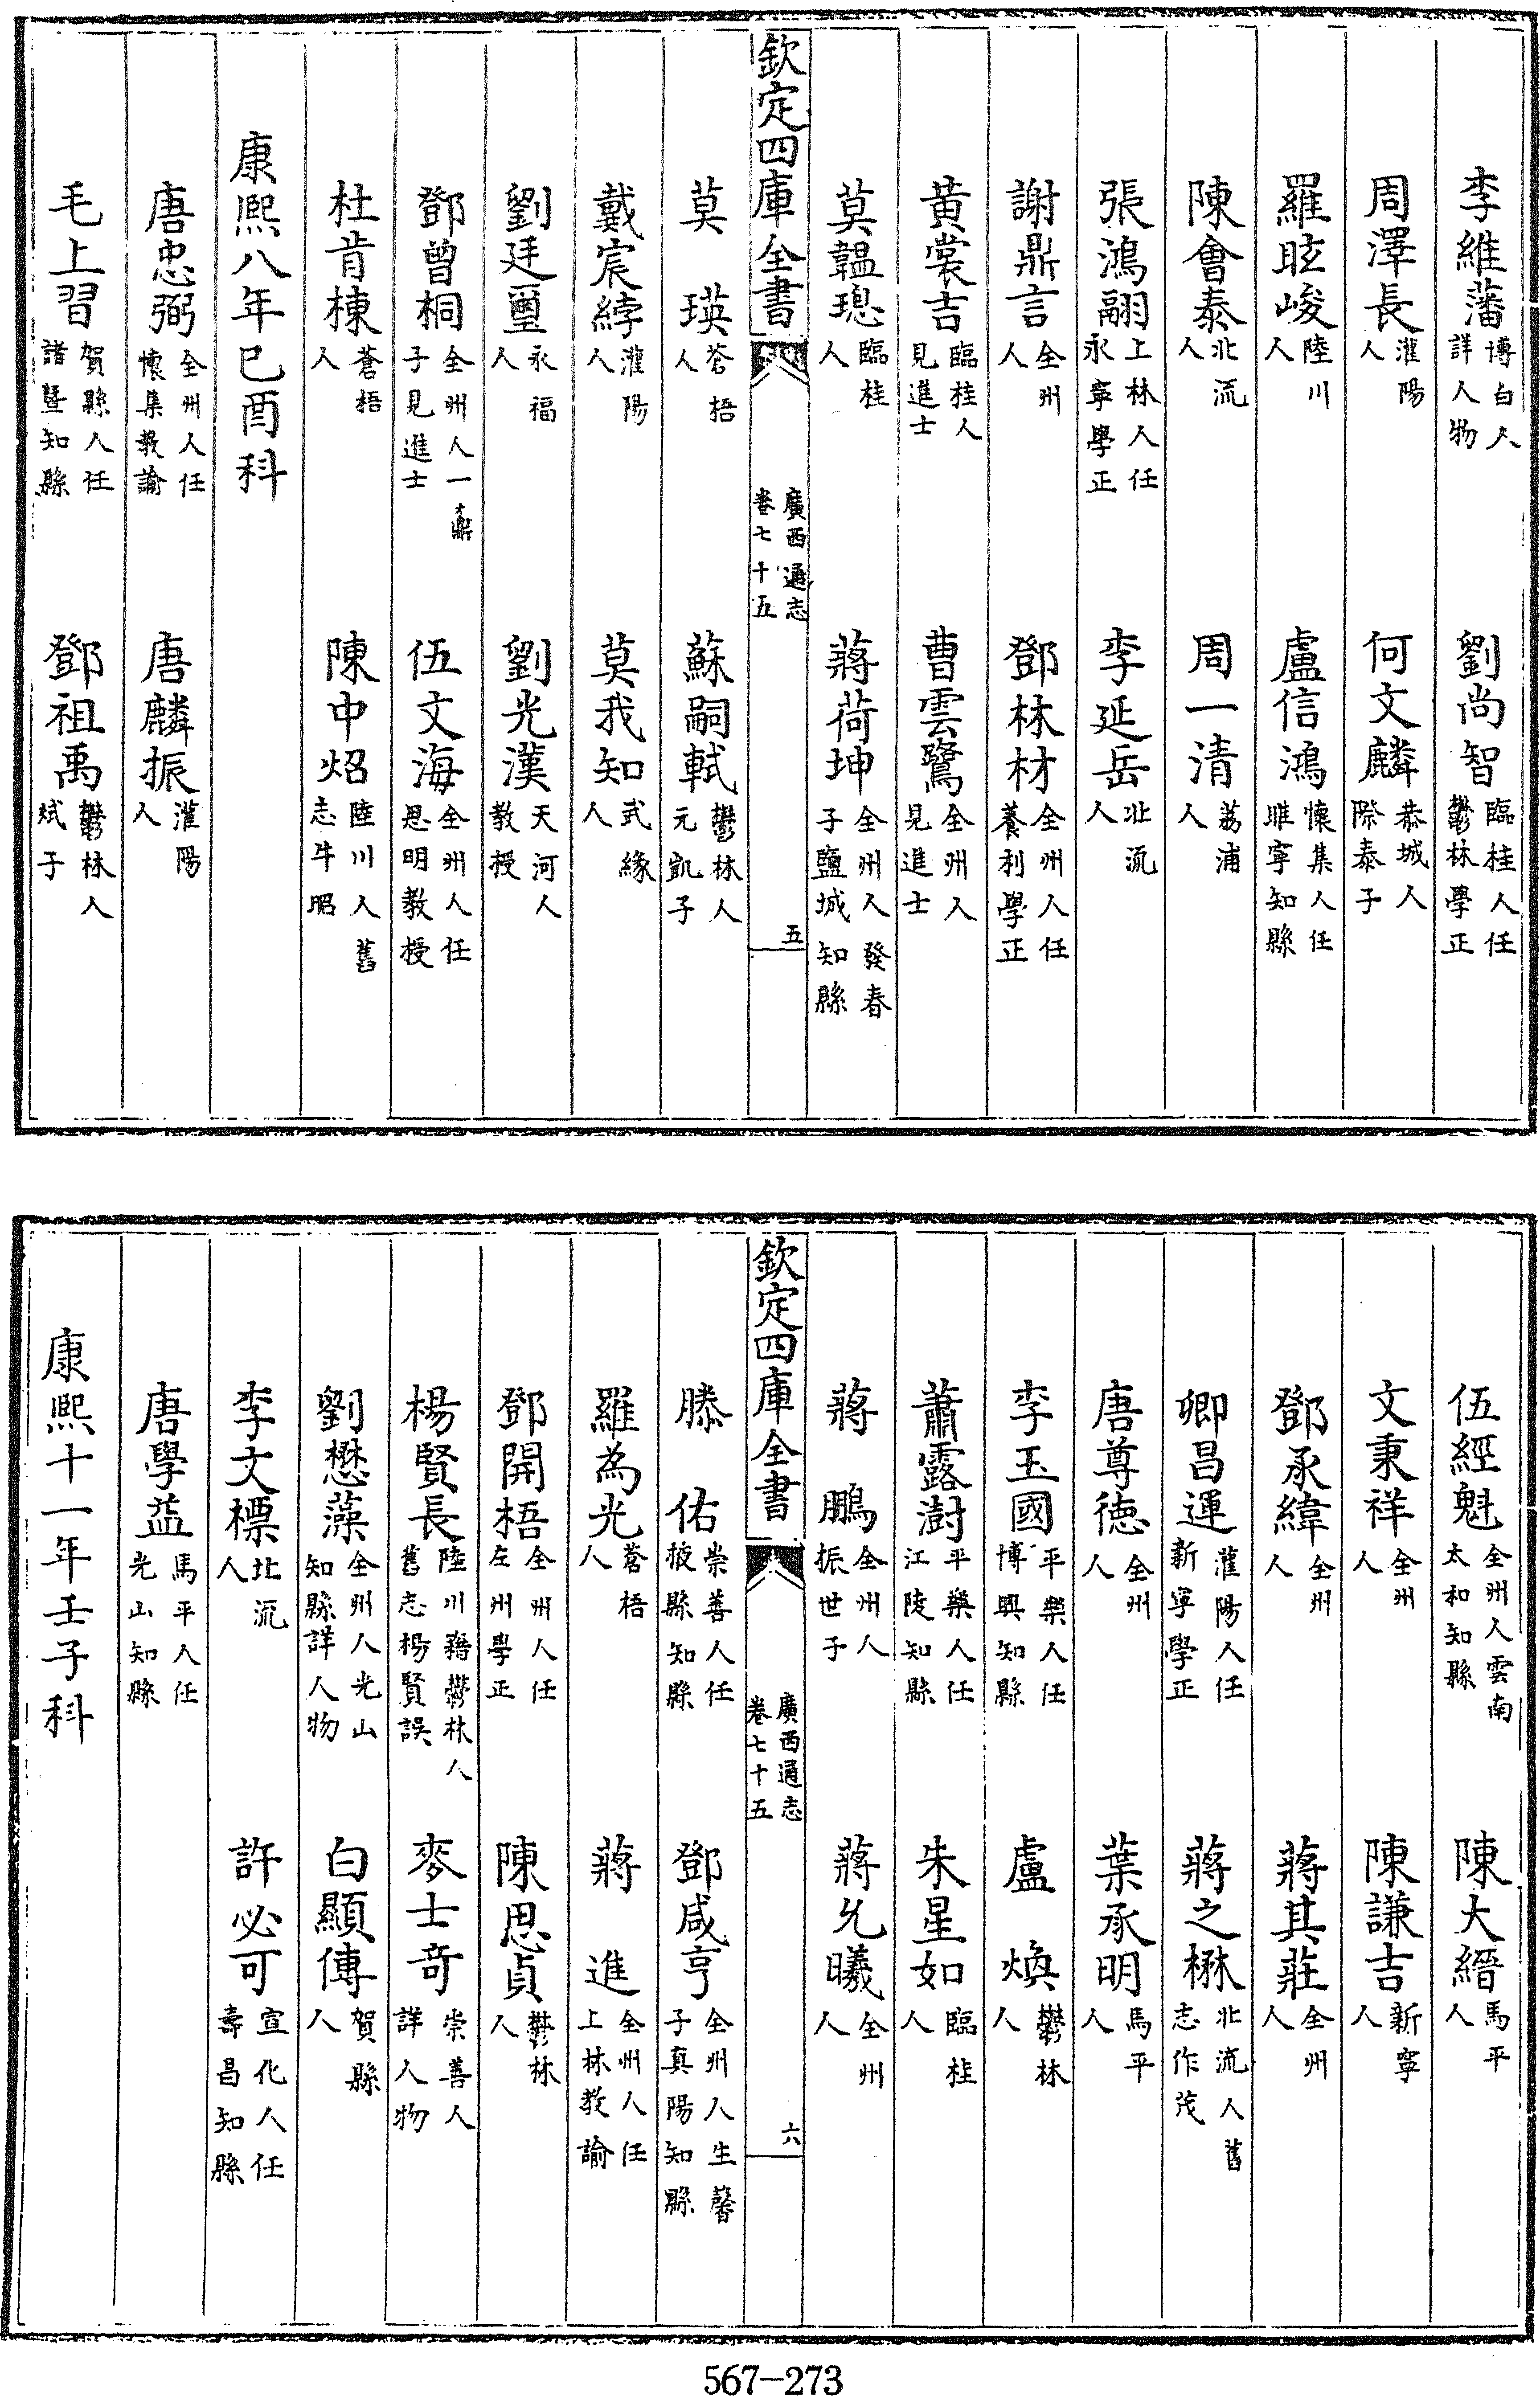 李維藩博白人詳人物 劉尚智臨桂人任鬱林學正
周澤長灌陽人 何文麟恭城人際泰子
羅昡峻陸川人 盧信鴻懷集人任睢寧知縣
陳會泰北流人 周一清荔浦人
張鴻翮上林人任永寧學正 李延岳北流人
謝鼎言全州人 鄧林材全州人任養利學正
黄裳吉臨桂人見進士 曹雲鷺全州人見進士
莫韞璁臨桂人 蔣荷坤全州人發春子鹽城知縣
欽定四庫全書 廣西通志卷七十五 五
莫瑛蒼梧人 蘇嗣軾鬱林人元凱子
戴宸綍灌陽人 莫我知武緣人
劉廷璽永福人 劉光漢天河人教授
鄧曾桐全州人一鼒子見進士 伍文海全州人任思明教授
杜肯棟蒼梧人 陳中炤陸川人舊志牛昭
康熙八年已酉科
唐忠弼全州人任懷集教諭 唐麟振灌陽人
毛上習賀縣人任諸暨知縣 鄧祖禹鬱林人斌子
伍經魁全州人雲南太和知縣 陳大縉馬平人
文秉祥全州人 陳謙吉新寧人
鄧承緯全州人 蔣其莊全州人
卿昌運灌陽人任新寧學正 蔣之楙北流人舊志作茂
唐尊德全州人 葉承明馬平人
李玉國平樂人任博興知縣 盧煥鬱林人
蕭露澍平樂人任江陵知縣 朱星如臨桂人
蔣鵬全州人振世子 蔣允曦全州人
欽定四庫全書 廣西通志卷七十五 六
滕佑崇善人任掖縣知縣 鄧咸亨全州人生馨子真陽知縣
羅為光蒼梧人 蔣進全州人任上林教諭
鄧開梧全州人任左州學正 陳思貞鬱林人
楊賢長陸川籍鬱林人舊志楊賢誤 麥士竒崇善人詳人物
劉懋藻全州人光山知縣詳人物 白顯傳賀縣人
李文標北流人 許必可宣化人任壽昌知縣
唐學益馬平人任光山知縣
康熙十一年壬子科
567-273